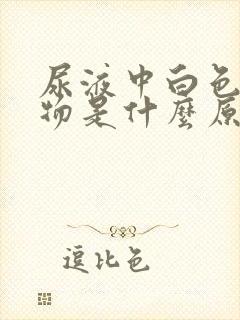 尿液中白色
物是什麼原
逗比色